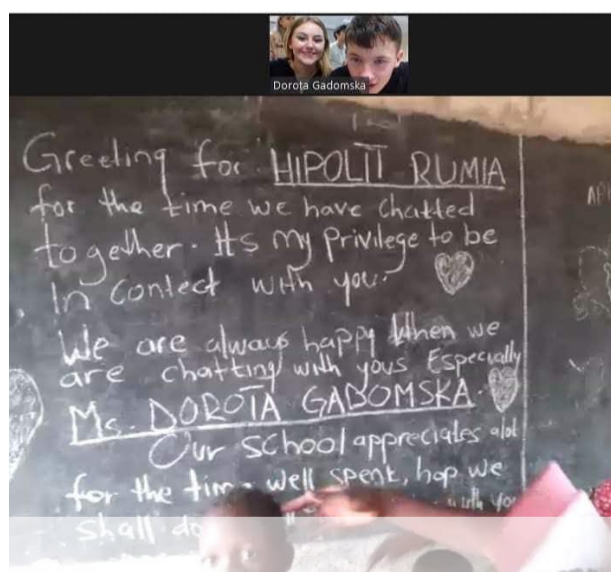 Dorota Gadomska
Greeting for HIPOLIT RUMIA
for the time we have chatted
together. Its my Privilege to be
In Contect with you.
We are always happy When we
are chatting with yous Especially
Ms. DOROTA GADOMSKA.
Our school appreciates alot
for the time well spent, hop we
with you
shall do